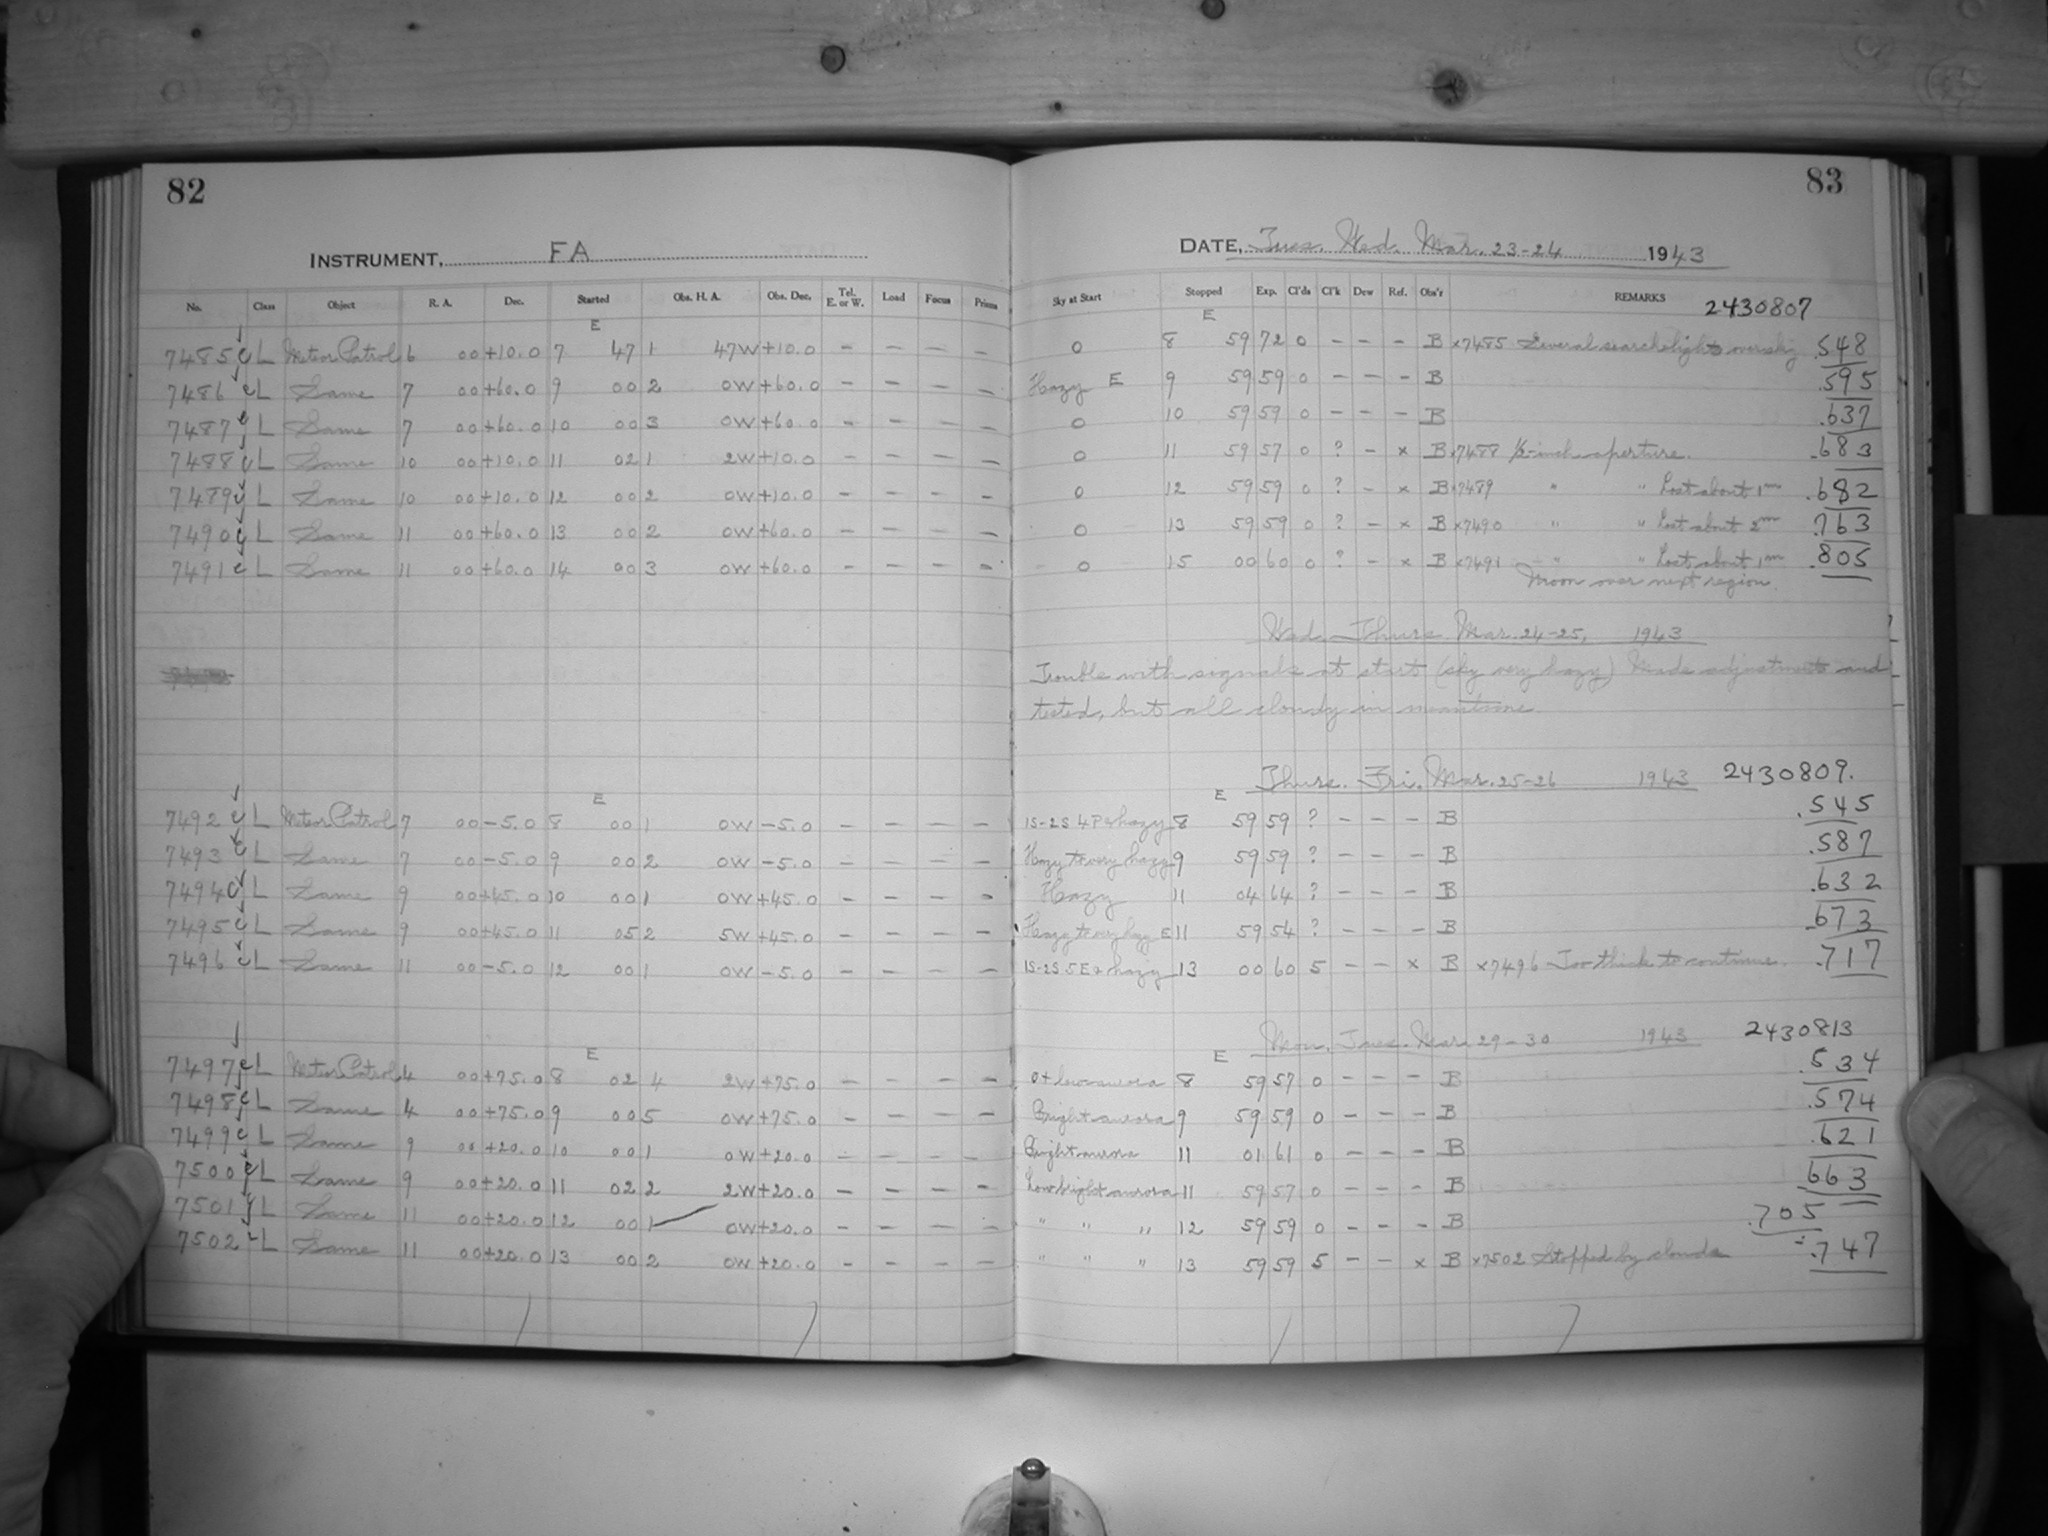 82
INSTRUMENT, FA
No. Class Object R. A. Dec. Started Obs. H. A. Obs. Dec. Tel. E. or W. Load Focus Prisms
E
7485 L Meteor Patrol 6 00 +10.0 7 47 1 47W +10.0 – – – –
7486 L Same 7 00 +60.0 9 00 2 0W +60.0 – – – –
7487 L Same 7 00 +60.0 10 00 3 0W +60.0 – – – –
7488 L Same 10 00 +10.0 11 02 1 2W +10.0 – – – –
7489 L Same 10 00 +10.0 12 00 2 0W +10.0 – – – –
7490 L Same 11 00 +60.0 13 00 2 0W +60.0 – – – –
7491 L Same 11 00 +60.0 14 00 3 0W +60.0 – – – –
E
7492 L Meteor Patrol 7 00 –5.0 8 00 1 0W –5.0 – – – –
7493 L Same 7 00 –5.0 9 00 2 0W –5.0 – – – –
7494 L Same 9 00 +45.0 10 00 1 0W +45.0 – – – –
7495 L Same 9 00 +45.0 11 05 2 5W +45.0 – – – –
7496 L Same 11 00 –5.0 12 00 1 0W –5.0 – – – –
E
7497 L Meteor Patrol 4 00 +75.0 8 02 4 2W +75.0 – – – –
7498 L Same 4 00 +75.0 9 00 5 0W +75.0 – – – –
7499 L Same 9 00 +20.0 10 00 1 0W +20.0 – – – –
7500 L Same 9 00 +20.0 11 02 2 2W +20.0 – – – –
7501 L Same 11 00 +20.0 12 00 1 0W +20.0 – – – –
7502 L Same 11 00 +20.0 13 00 2 0W +20.0 – – – –
83
DATE, Tues. Wed. Mar. 23-24 1943
Sky at Start Stopped Exp. Cl'ds Cl'k Dew Ref. Obs'r REMARKS 2430807
E
0 8 59 72 0 – – – B x7485 Several searchlights over sky .548
Hazy E 9 59 59 0 – – – B .595
0 10 59 59 0 – – – B .637
0 11 59 57 0 ? – x B x7488 ½-inch aperture. .683
0 12 59 59 0 ? – x B x7489 " " Lost about 1m .682
0 13 59 59 0 ? – x B x7490 " " Lost about 2m .763
0 15 00 60 0 ? – x B x7491 " " Lost about 1m .805
Moon over next region.
Wed. Thurs. Mar. 24-25, 1943
Trouble with signals at start (sky very hazy) Made adjustments and
tested, but all cloudy in meantime.
Thurs. Fri. Mar. 25-26 1943 2430809.
E
1S-2S 4P & hazy 8 59 59 ? – – – B .545
Hazy to very hazy 9 59 59 ? – – – B .587
Hazy 11 04 64 ? – – – B .632
Hazy to very hazy E 11 59 54 ? – – – B .673
1S-2S 5E & hazy 13 00 60 5 – – x B x7496 Too thick to continue. .717
Mon. Tues. Mar. 29-30 1943 2430813
E
0+ low aurora 8 59 57 0 – – – B .534
Bright aurora 9 59 59 0 – – – B .574
Bright aurora 11 01 61 0 – – – B .621
Low bright aurora 11 59 57 0 – – – B .663
" " " 12 59 59 0 – – – B .705
" " " 13 59 59 5 – – x B x7502 Stopped by clouds .747